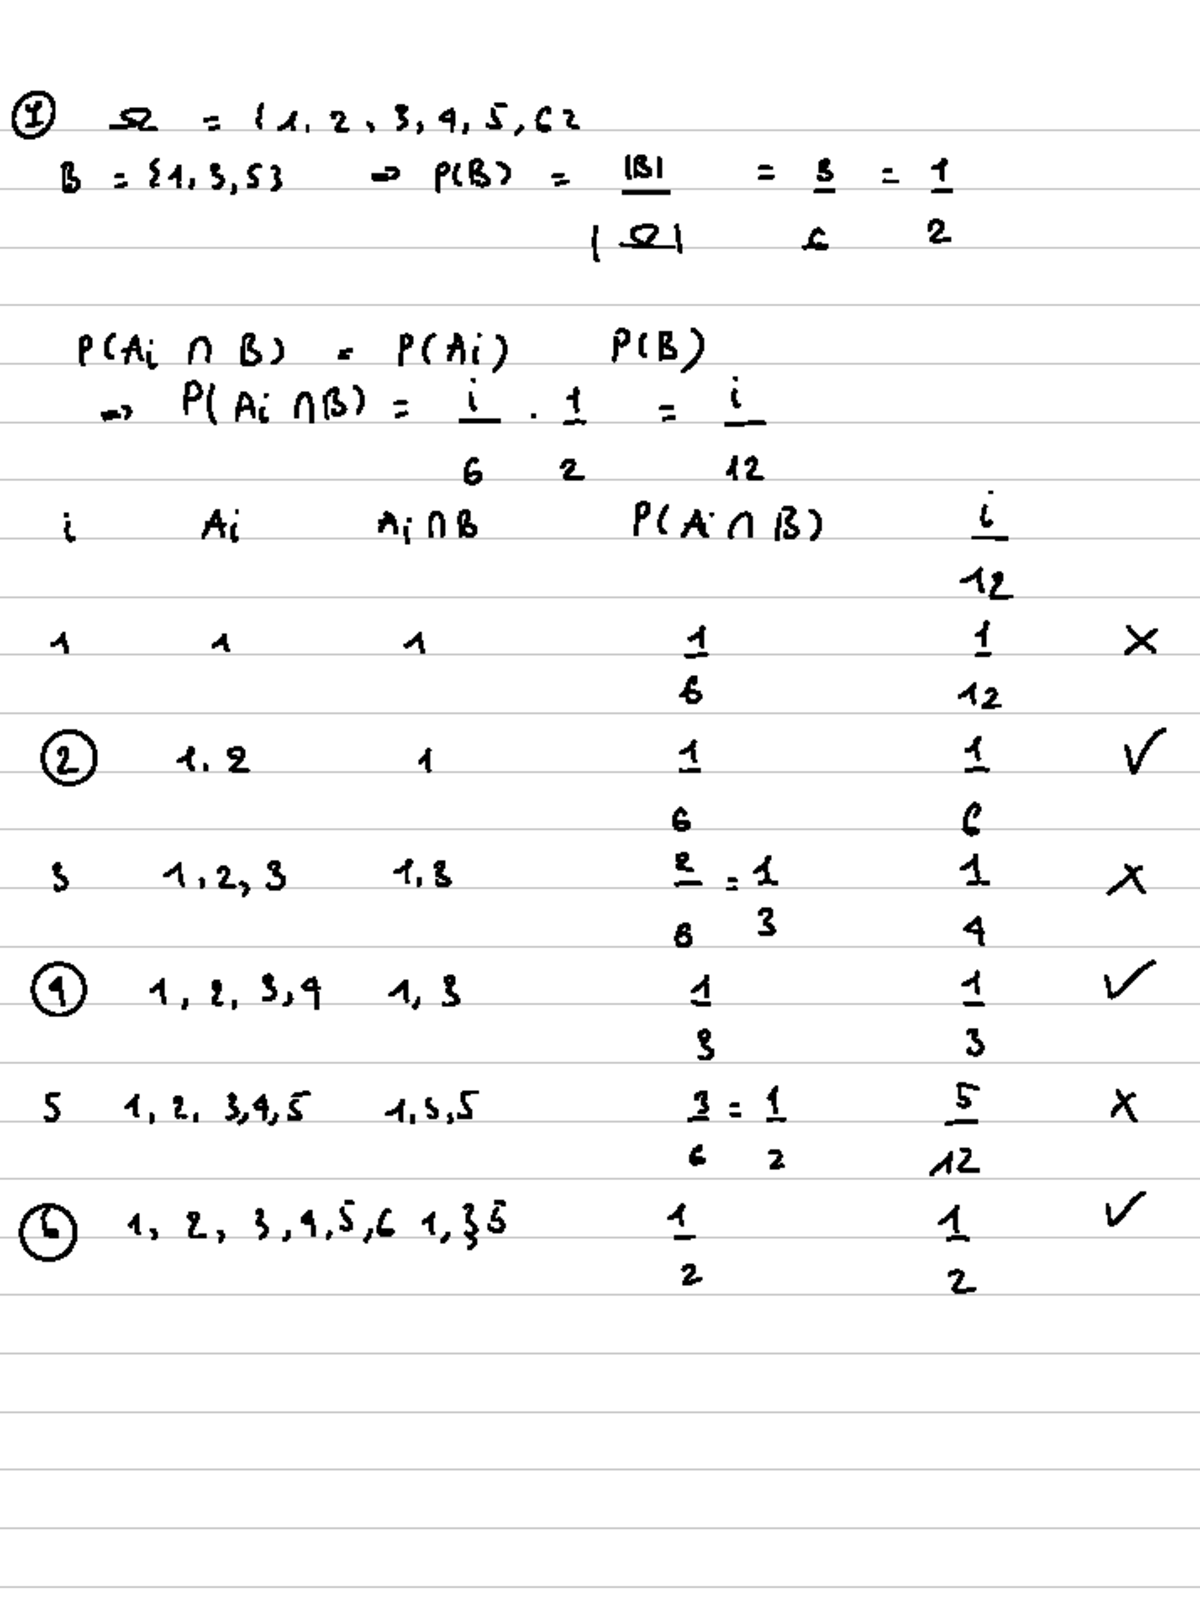 ① Ω = {1, 2, 3, 4, 5, 6}
B = {1, 3, 5} => P(B) = |B| / |Ω| = 3/6 = 1/2
P(Ai ∩ B) = P(Ai) P(B)
=> P(Ai ∩ B) = i/6 · 1/2 = i/12
i Ai Ai ∩ B P(Ai ∩ B) i/12
1 1 1 1/6 1/12 ✗
② 1, 2 1 1/6 1/6 ✓
3 1, 2, 3 1, 3 2/6 = 1/3 1/4 ✗
④ 1, 2, 3, 4 1, 3 1/3 1/3 ✓
5 1, 2, 3, 4, 5 1, 3, 5 3/6 = 1/2 5/12 ✗
⑥ 1, 2, 3, 4, 5, 6 1, 3 5 1/2 1/2 ✓